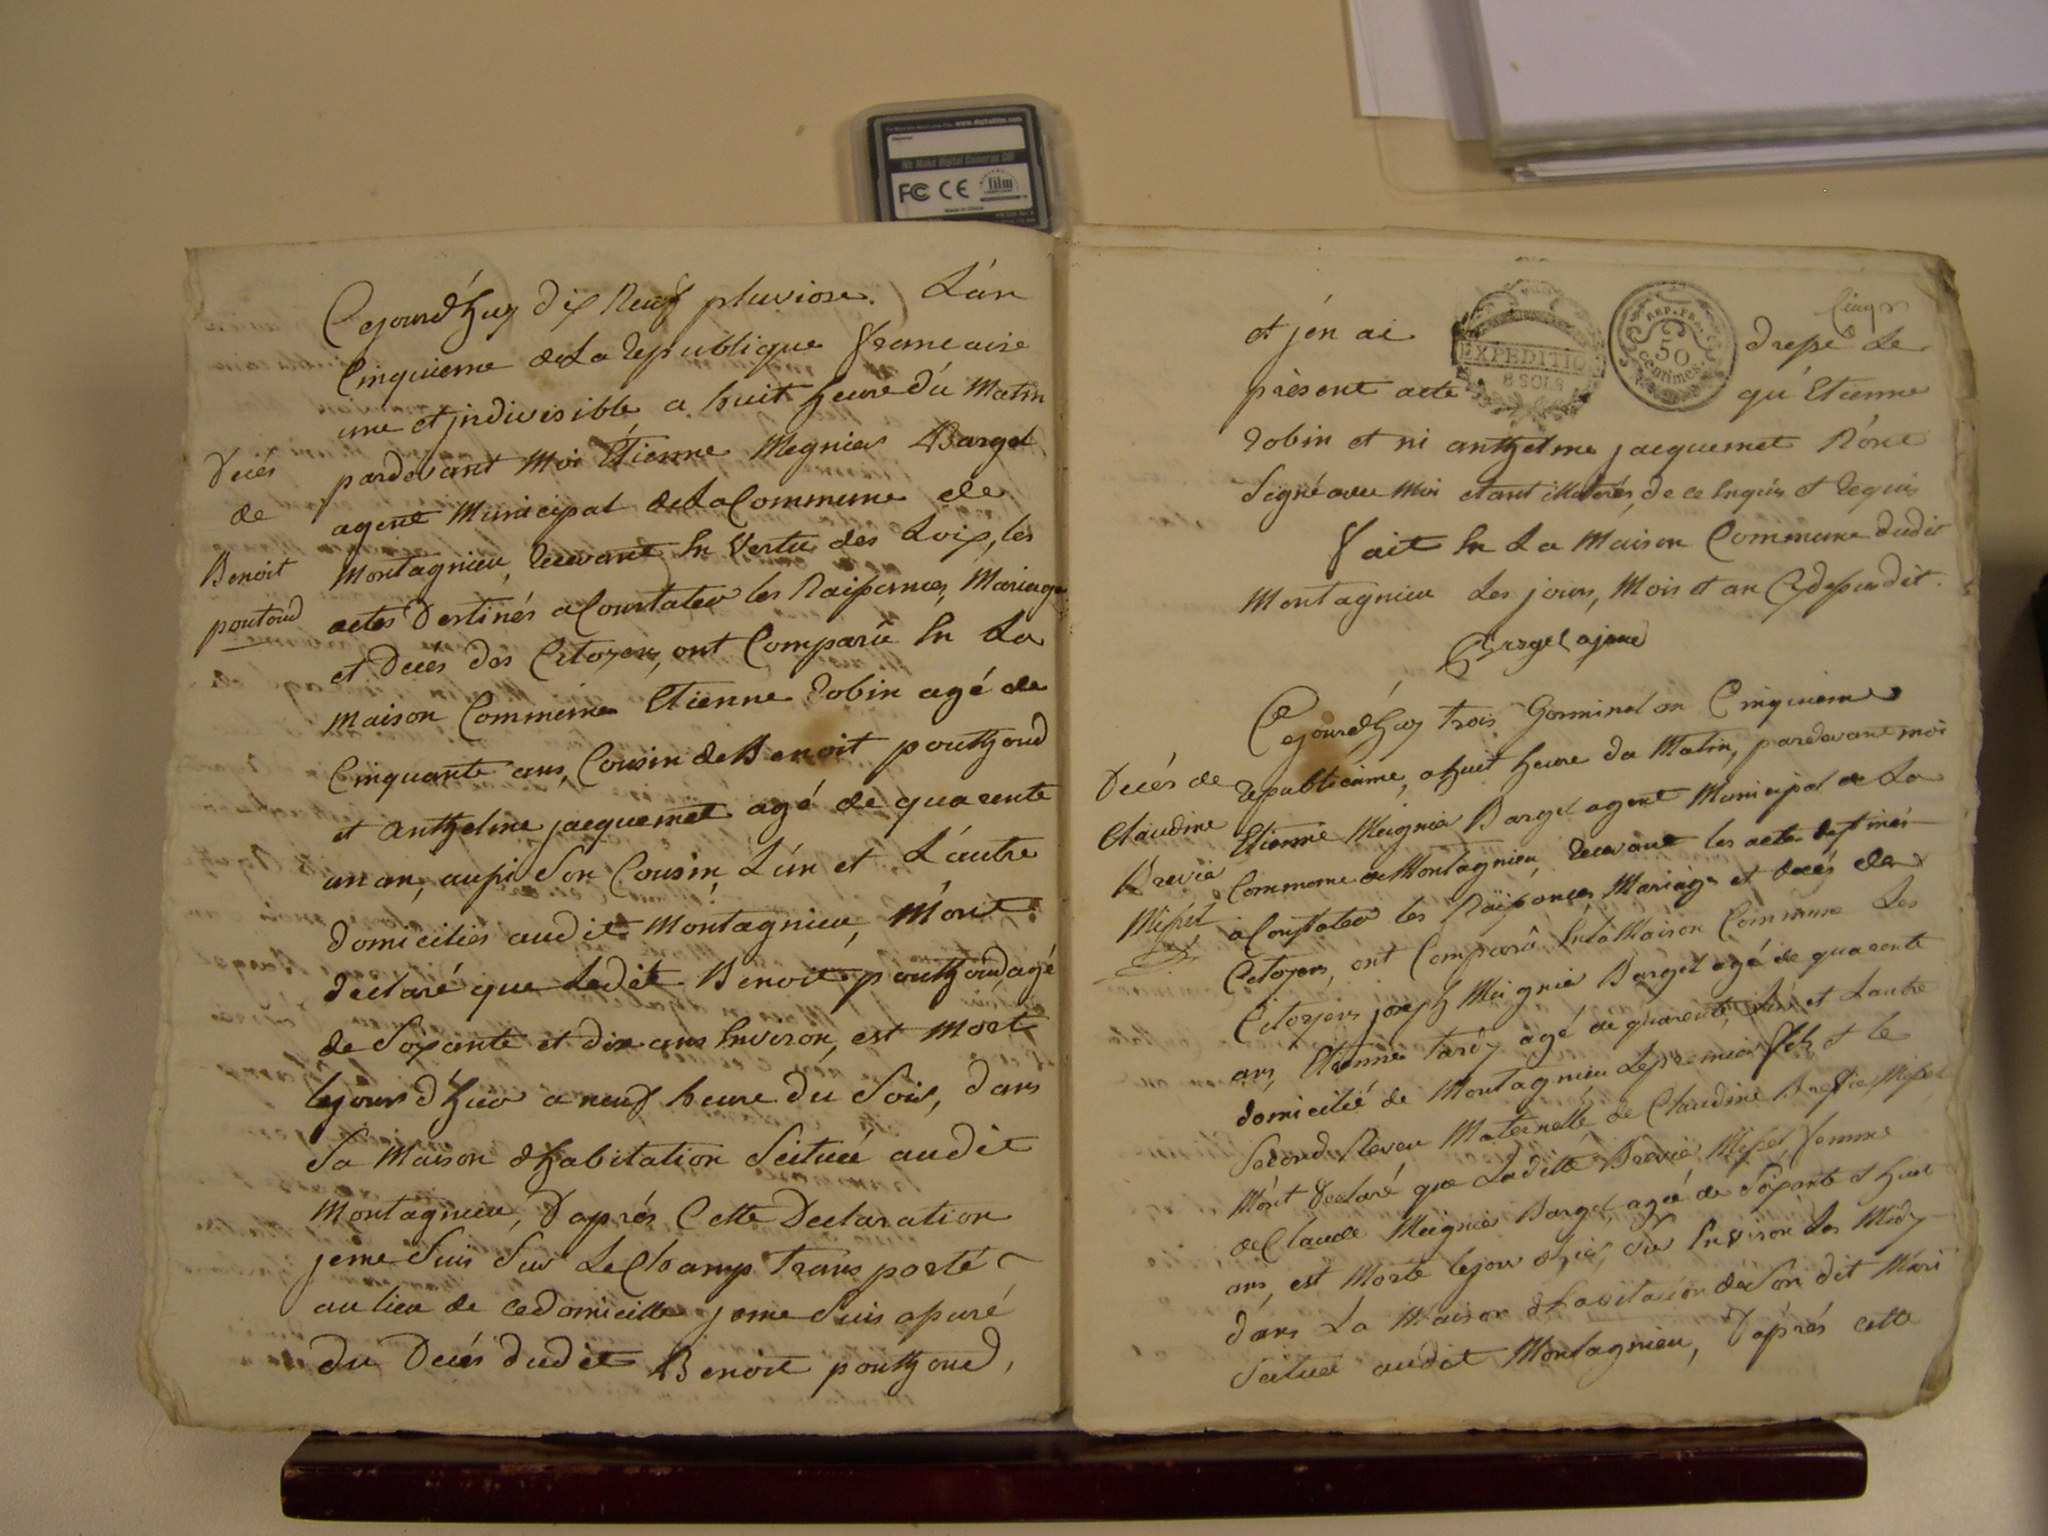 www.digitalfilm.com
We Make Digital Cameras GO!
FC CE
film
Cejourd'huy dix Neuf pluviose. L'an
Cinquieme de La republique francaise
une et jndivisible a huit heure du Matin
pardevant Moi Etienne Megnier Bargel
agent Municipal de La Commune de
Montagnieu, recevant En Vertu des Loix, les
actes Destinés a Constater les Naissances, Mariages
et Deces des Citoyens, ont Comparü En La
Maison Commune Etienne robin agé de
Cinquante ans, Cousin de Benoit pouthoud
et anthelme jacquemet agé de quarente
un an, aussi Son Cousin L'un et L'autre
domiciliés audit Montagnieu, M'ont
declaré que Ledit Benoit pouthoud, agé
de Soixante et dix ans Environ, est Mort
le jour d'hier a neuf heure du Soir, dans
Sa Maison d'habitation Scituée audit
Montagnieu, D'aprés Cette Declaration
je me Suis Sur Le Champ Transporté
au lieu de ce domicille je me Suis assuré
du Decés dudit Benoit pouthoud,
Decés
de
Benoit
poutoud
EXPEDITION
8 SOLS
REP. FRA.
50
Centimes
Cinq
et j'en ai dressé Le
présent acte qu'Etienne
robin et ni anthelme jacquemet N'ont
Signé avec Moi etant illiterés, de ce Enquis et requis
fait En La Maison Commune dudit
Montagnieu Les jours, Mois et an Cydessus dit.
Bargel ajent
Cejourd'huy trois Germinal an Cinquieme
republicaine, a huit heure du Matin, pardevant moi
Etienne Meignier Bargel agent Municipal de La
Commune de Montagnieu, recevant les actes destinés
a Constater les Naissances, Mariage et decés des
Citoyens, ont Comparü En la Maison Commune Les
Citoyens joseph Meignier Bargel agé de quarente
ans, Etienne tardy agé de quarente, L'un et L'autre
domicilié de Montagnieu Le premier fils et le
Second Neveu Maternelle de Claudine
M'ont declaré que Laditte femme
de Claude Meignier Bargel, agée de Soixante et huit
ans, est Morte le jour d'hier, Sur Environ Les Midy
dans La Maison d'habitation de Son dit Mari
Scituée audit Montagnieu, D'aprés cette
Decés de
Claudine